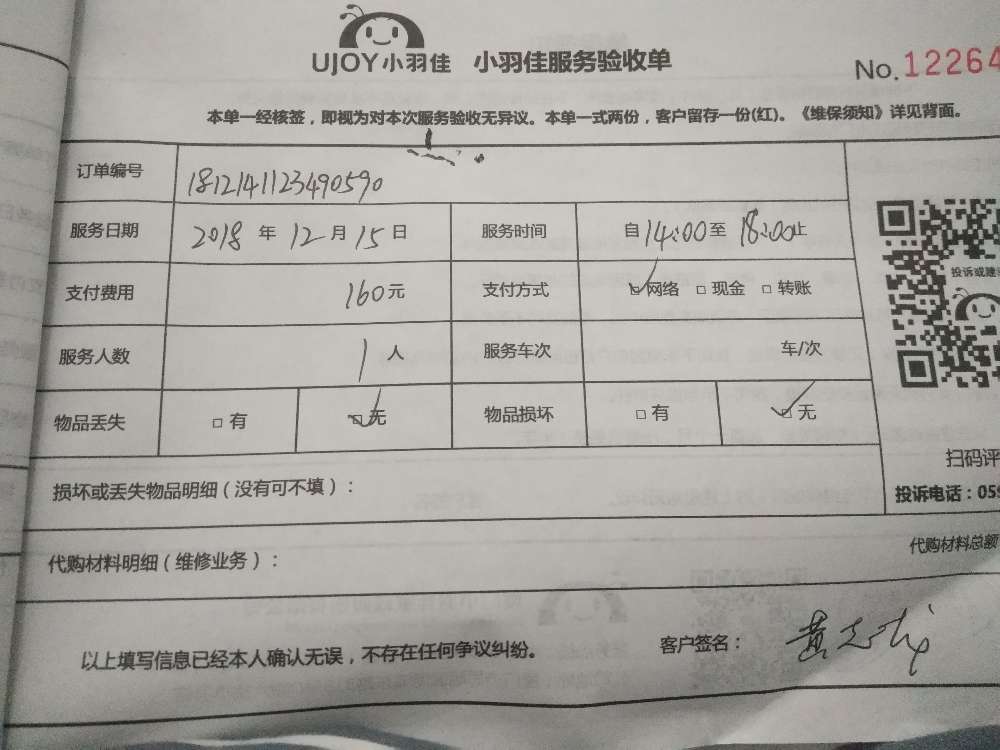 UJOY小羽佳 小羽佳服务验收单
No.12264
本单一经核签，即视为对本次服务验收无异议。本单一式两份，客户留存一份(红)。《维保须知》详见背面。
订单编号 1812141123490590
服务日期 2018 年 12 月 15 日 服务时间 自 14:00 至 18:00 止
支付费用 160元 支付方式 ☑网络 □现金 □转账
服务人数 1 人 服务车次 车/次
物品丢失 □有 ☑无 物品损坏 □有 ☑无
投诉或建
扫码评
投诉电话：059
损坏或丢失物品明细（没有可不填）：
代购材料明细（维修业务）： 代购材料总额
以上填写信息已经本人确认无误，不存在任何争议纠纷。 客户签名： 黄志